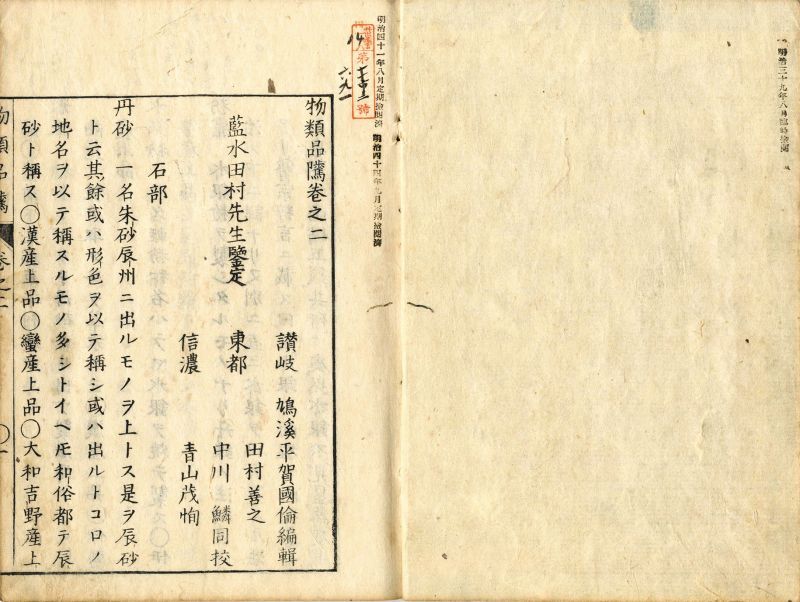 明治三十九年八月臨時撿閲
明治四十一年八月定期撿閲濟
明治四十四年九月定期撿閲濟
第
號
物類品隲卷之二
讃岐 鳩溪平賀國倫編輯
藍水田村先生鑒定 東都 田村善之
中川鱗同校
信濃 青山茂恂
石部
丹砂 一名朱砂辰州ニ出ルモノヲ上トス是ヲ辰砂
ト云其餘或ハ形色ヲ以テ稱シ或ハ出ルトコロノ
地名ヲ以テ稱スルモノ多シトイヘ𪜈和俗都テ辰
砂ト稱ス〇漢産上品〇蠻産上品〇大和吉野産上
物類品隲 卷之二